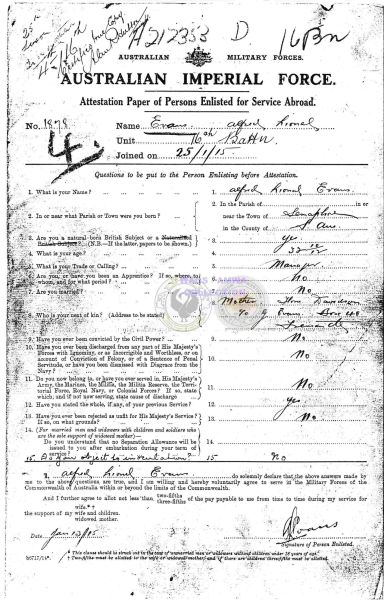 A212353 D 16 Bn
AUSTRALIAN MILITARY FORCES.
AUSTRALIAN IMPERIAL FORCE.
Attestation Paper of Persons Enlisted for Service Abroad.
No. 1878 Name Evans Alfred Lionel
Unit 16th Battn.
Joined on 25/1/15.
Questions to be put to the Person Enlisting before Attestation.
1. What is your Name? 1. Alfred Lionel Evans
2. In or near what Parish or Town were you born? 2. In the Parish of in or
near the Town of Semaphore
in the County of S. Aus
3. Are you a natural born British Subject or a Naturalized
British Subject? (N.B.—If the latter, papers to be shown.) 3. Yes
4. What is your age? 4. 32
5. What is your Trade or Calling? 5. Manager
6. Are you, or have you been an Apprentice? If so, where, to
whom, and for what period? 6. No
7. Are you married? 7. No
8. Who is your next of kin? (Address to be stated) 8. Mother
Evans Box
9. Have you ever been convicted by the Civil Power? 9. No
10. Have you ever been discharged from any part of His Majesty's
Forces with Ignominy, or as Incorrigible and Worthless, or on
account of Conviction of Felony, or of a Sentence of Penal
Servitude, or have you been dismissed with Disgrace from the
Navy? 10. No
11. Do you now belong to, or have you ever served in, His Majesty's
Army, the Marines, the Militia, the Militia Reserve, the Terri-
torial Force, Royal Navy, or Colonial Forces? If so, state
which, and if not now serving, state cause of discharge 11. No
12. Have you stated the whole, if any, of your previous Service? 12. Yes
13. Have you ever been rejected as unfit for His Majesty's Service?
If so, on what grounds? 13. No
14. (For married men and widowers with children and soldiers who
are the sole support of widowed mother)—
Do you understand that no Separation Allowance will be
issued to you after embarkation during your term of
service? 14.
15. Do you object to inoculation? 15 No
I, Alfred Lionel Evans do solemnly declare that the above answers made by
me to the above questions are true, and I am willing and hereby voluntarily agree to serve in the Military Forces of the
Commonwealth of Australia within or beyond the limits of the Commonwealth.
And I further agree to allot not less than two-fifths
three-fifths of the pay payable to me from time to time during my service for
the support of my wife.*†
wife and children.
widowed mother.
Date Jan 13/15 Evans
Signature of Person Enlisted.
*This clause should be struck out in the case of unmarried men or widowers without children under 18 years of age.
†Two-fifths must be allotted to the wife or widowed mother; and if there are children three-fifths must be allotted.